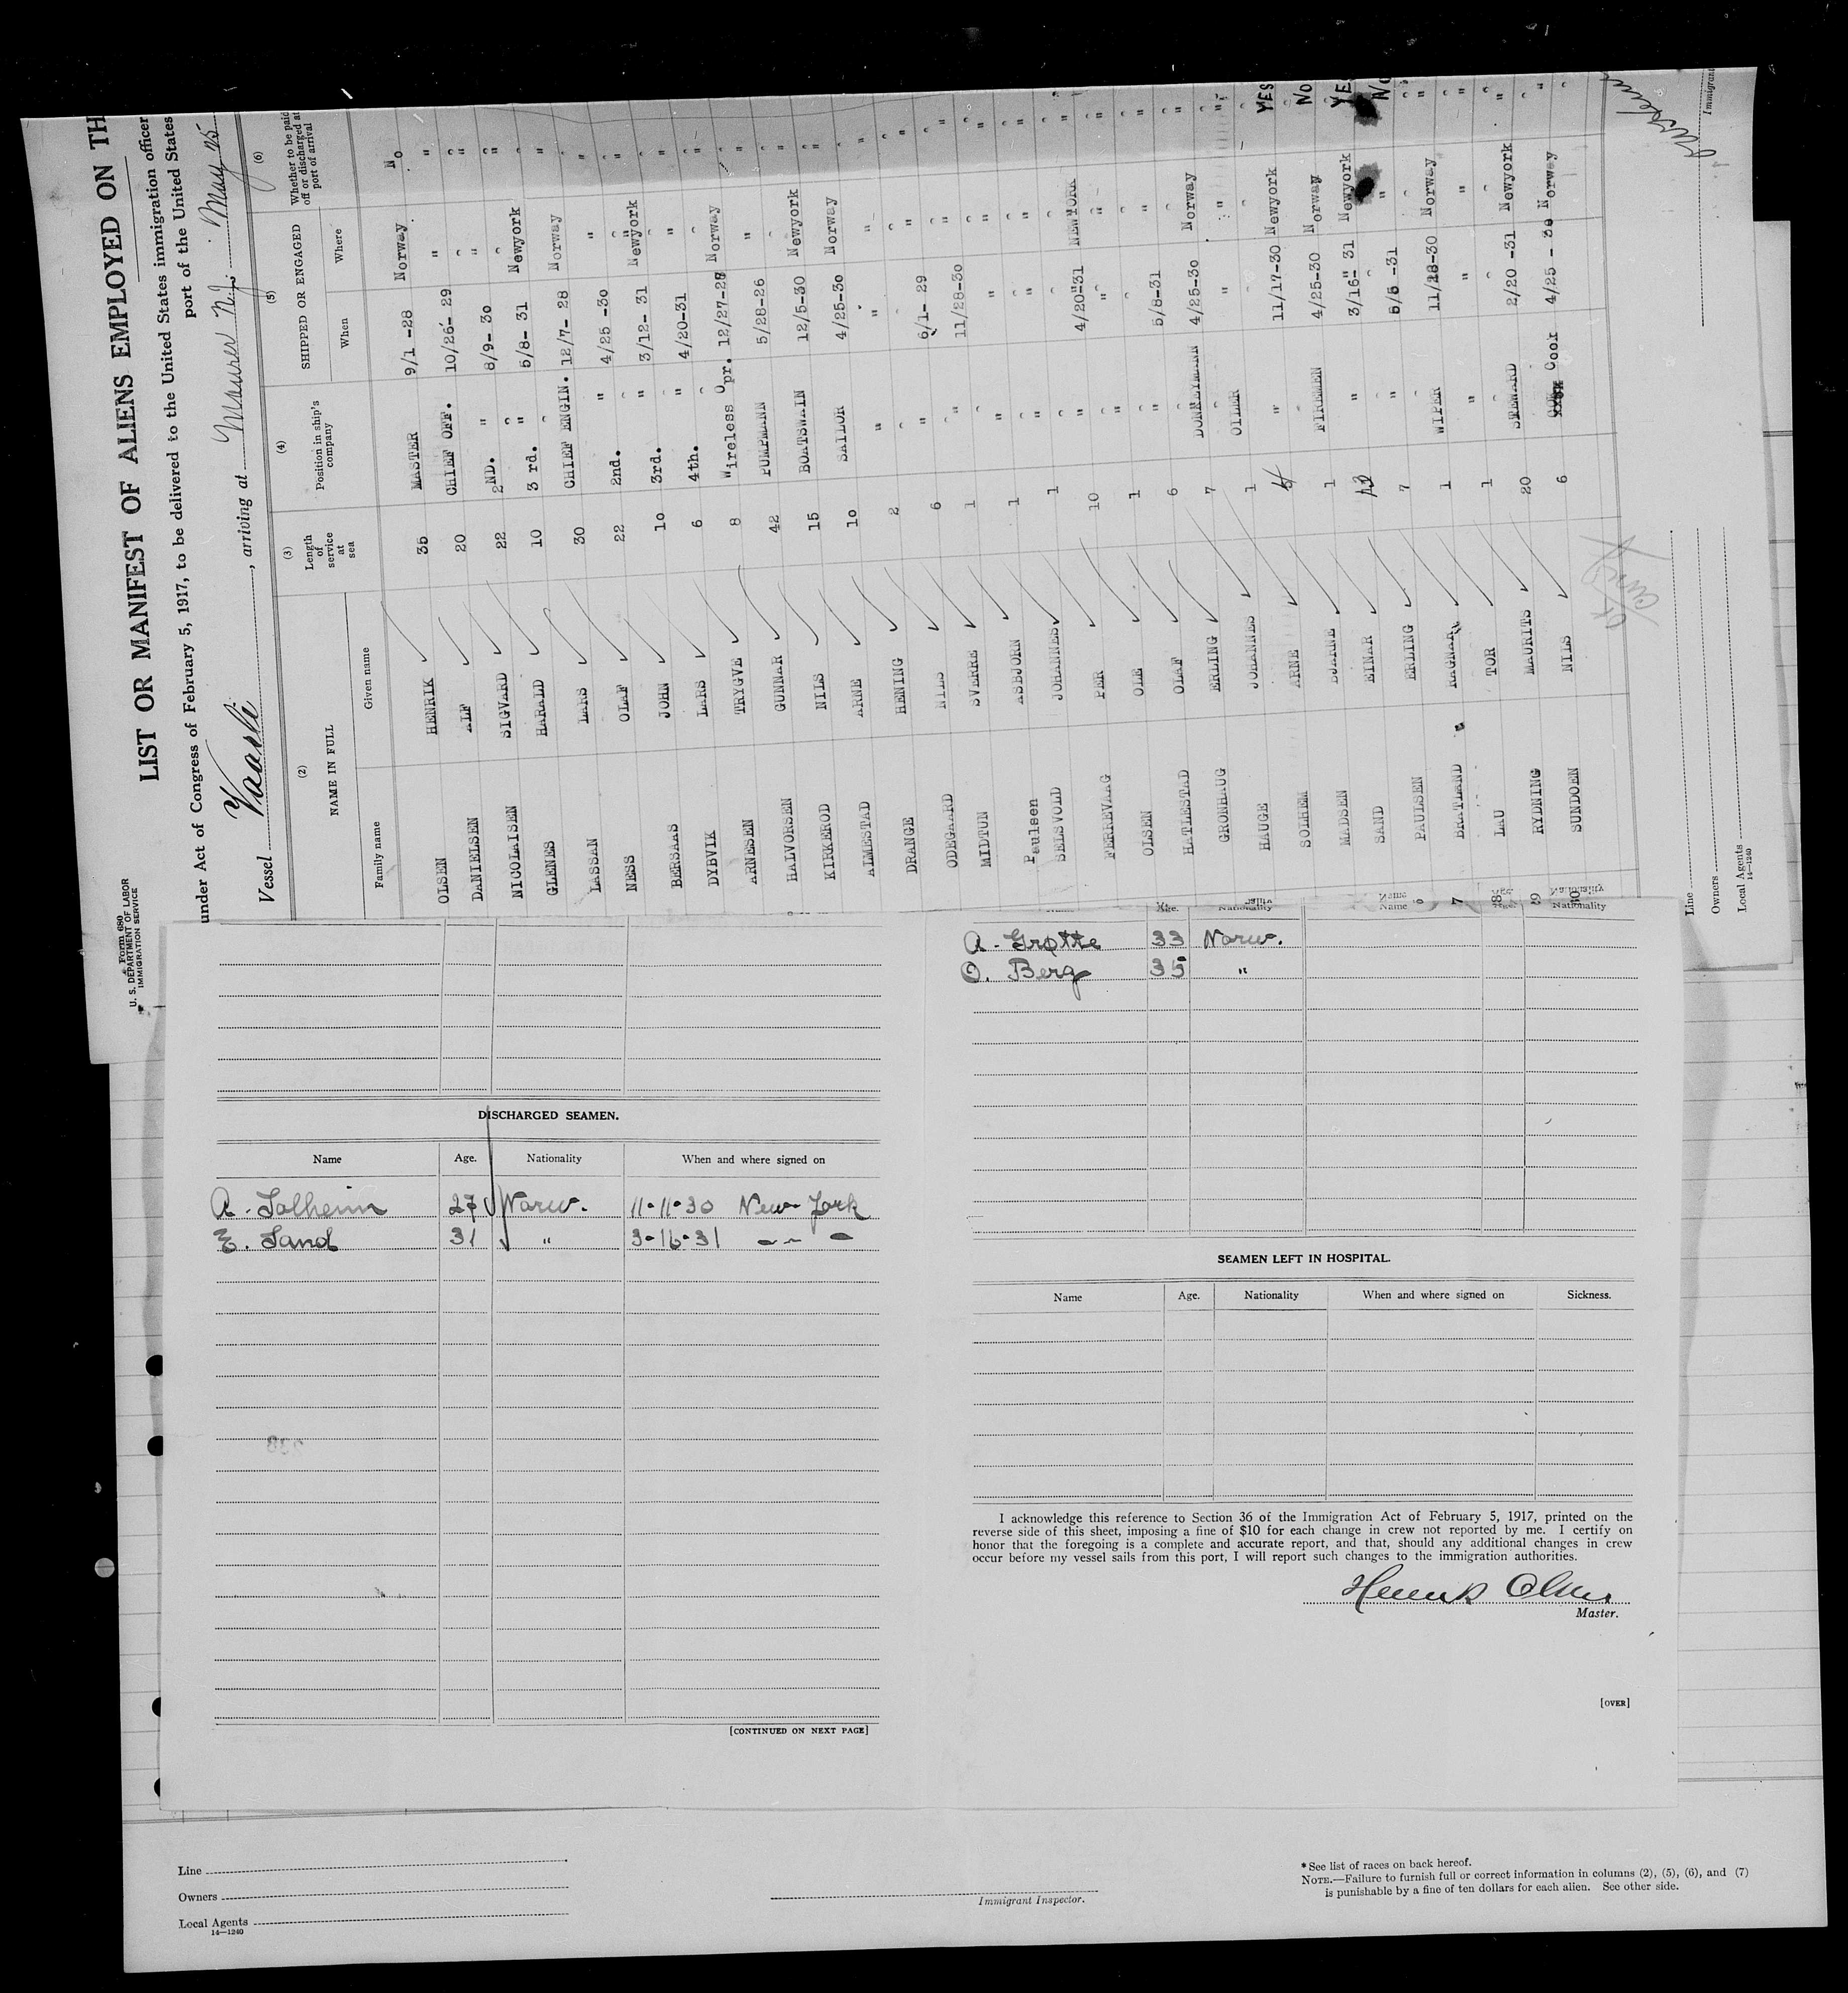 Form 680
U. S. DEPARTMENT OF LABOR
IMMIGRATION SERVICE
LIST OR MANIFEST OF ALIENS EMPLOYED ON TH
under Act of Congress of February 5, 1917, to be delivered to the United States immigration officer
port of the United States
Vessel Vaarli, arriving at Maurer N.J. May 25
(2) (3) (4) (5) (6)
NAME IN FULL
Family name Given name
Length of service at sea
Position in ship's company
SHIPPED OR ENGAGED
When Where
Whether to be paid off or discharged at port of arrival
OLSEN HENRIK 35 MASTER 9/1 -28 Norway No
DANIELSEN ALF 20 CHIEF OFF. 10/26- 29 " "
NICOLAISEN SIGVARD 22 2ND. " 8/9- 30 " "
GLENES HARALD 10 3 rd. " 5/8- 31 Newyork "
LASSAN LARS 30 CHIEF ENGIN. 12/7- 28 Norway "
NESS OLAF 22 2nd. " 4/25 -30 " "
BERSAAS JOHN 10 3rd. " 3/12- 31 Newyork "
DYBVIK LARS 6 4th. " 4/20-31 " "
ARNESEN TRYGVE 8 Wireless Opr. 12/27-28 Norway "
HALVORSEN GUNNAR 42 PUMPMANN 5/28-26 " "
KIRKEROD NILS 15 BOATSWAIN 12/5-30 Newyork "
ALMESTAD ARNE 10 SAILOR 4/25-30 Norway "
DRANGE HENING 2 " " " "
ODEGAARD NILS 6 " 6/1- 29 " "
MIDTUN SVERRE 1 " 11/28-30 " "
Paulsen ASBJORN 1 " " " "
SELSVOLD JOHANNES 1 " " " "
FERREVAAG PER 10 " 4/20-31 NEWYORK "
OLSEN OLE 1 " " " "
HATLESTAD OLAF 6 " 5/8-31 " "
GRONHAUG ERLING 7 DONKEYMANN 4/25-30 Norway "
HAUGE JOHANNES 1 OILER " " "
SOLHEM ARNE " 11/17-30 Newyork YES
MADSEN BJARNE 1 FIREMEN 4/25-30 Norway NO
SAND EINAR " 3/16- 31 Newyork YES
PAULSEN ERLING 7 " 5/5 -31 " NO
BRATLAND RAGNAR 1 WIPER 11/28-30 Norway "
LAU TOR 1 " " " "
RYDNING MAURITS 20 STEWARD 2/20 -31 Newyork "
SUNDOEN NILS 6 Cook 4/25 - 30 Norway "
Line
Owners
Local Agents
14—1240
Immigrant
DISCHARGED SEAMEN.
Name Age. Nationality When and where signed on
A. Solheim 27 Norw. 11-11-30 New York
E. Sand 31 " 3-16-31 — " —
[CONTINUED ON NEXT PAGE]
Name Age. Nationality Name Nationality
A. Grøtte 33 Norw.
O. Berg 35 "
SEAMEN LEFT IN HOSPITAL.
Name Age. Nationality When and where signed on Sickness.
I acknowledge this reference to Section 36 of the Immigration Act of February 5, 1917, printed on the
reverse side of this sheet, imposing a fine of $10 for each change in crew not reported by me. I certify on
honor that the foregoing is a complete and accurate report, and that, should any additional changes in crew
occur before my vessel sails from this port, I will report such changes to the immigration authorities.
Henrik Olsen
Master.
[OVER]
Line
Owners
Local Agents
14—1240
Immigrant Inspector.
* See list of races on back hereof.
NOTE.—Failure to furnish full or correct information in columns (2), (5), (6), and (7)
is punishable by a fine of ten dollars for each alien. See other side.